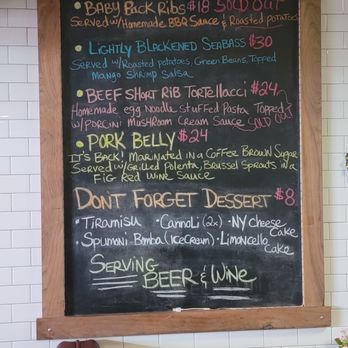 • BABY BACK RIBS $18 SOLD OUT
SERVED W/HOMEMADE BBQ SAUCE & ROASTED POTATOES
• LIGHTLY BLACKENED SEABASS $30
SERVED W/ROASTED POTATOES, GREEN BEANS, TOPPED
MANGO SHRIMP SALSA
• BEEF SHORT RIB TORTELLACCI $24
HOMEMADE EGG NOODLE STUFFED PASTA TOPPED
W/PORCINI MUSHROOM CREAM SAUCE SOLD OUT
• PORK BELLY $24
IT'S BACK! MARINATED IN A COFFEE BROWN SUGAR
SERVED W/GRILLED POLENTA, BRUSSEL SPROUTS IN A
FIG RED WINE SAUCE
DONT FORGET DESSERT $8
• TIRAMISU • CANNOLI (2x) • NY CHEESE
CAKE
• SPUMONI BOMBA (ICE CREAM) • LIMONCELLO
CAKE
SERVING
BEER & WINE